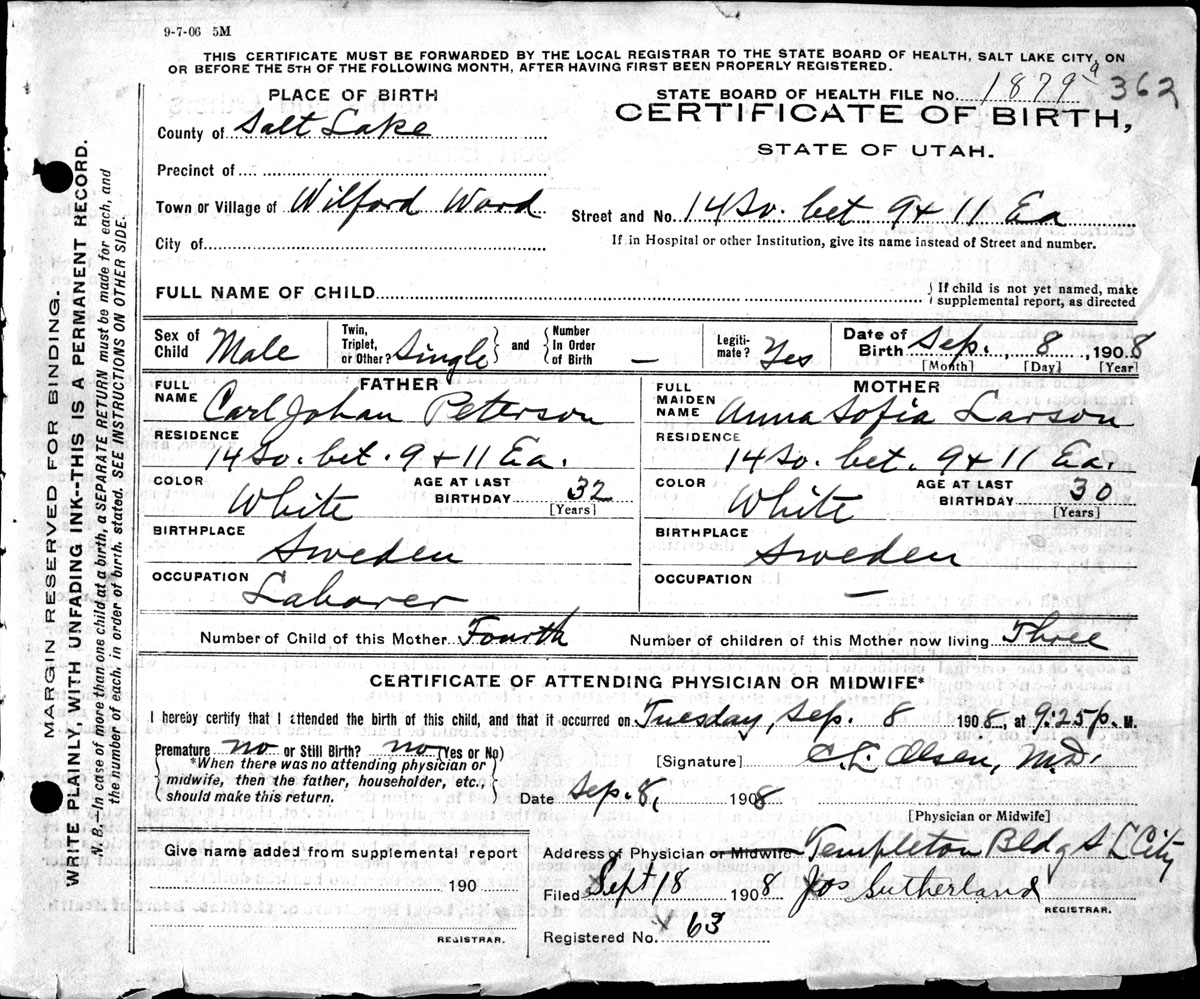 9-7-06 5M
THIS CERTIFICATE MUST BE FORWARDED BY THE LOCAL REGISTRAR TO THE STATE BOARD OF HEALTH, SALT LAKE CITY, ON
OR BEFORE THE 5TH OF THE FOLLOWING MONTH, AFTER HAVING FIRST BEEN PROPERLY REGISTERED.
PLACE OF BIRTH
STATE BOARD OF HEALTH FILE No. 1879 9 362
CERTIFICATE OF BIRTH,
STATE OF UTAH.
County of Salt Lake
Precinct of
Town or Village of Wilford Ward
Street and No. 14 So. bet 9 + 11 Ea
City of
If in Hospital or other Institution, give its name instead of Street and number.
FULL NAME OF CHILD
If child is not yet named, make
supplemental report, as directed
Sex of Child Male
Twin, Triplet, or Other? Single and Number In Order of Birth —
Legitimate? Yes
Date of Birth Sep. , 8 , 1908
[Month] [Day] [Year]
FATHER
FULL NAME Carl Johan Peterson
RESIDENCE 14 So. bet. 9 + 11 Ea.
COLOR White AGE AT LAST BIRTHDAY 32
[Years]
BIRTHPLACE Sweden
OCCUPATION Laborer
MOTHER
FULL MAIDEN NAME Anna Sofia Larson
RESIDENCE 14 So. bet. 9 + 11 Ea.
COLOR White AGE AT LAST BIRTHDAY 30
[Years]
BIRTHPLACE Sweden
OCCUPATION —
Number of Child of this Mother Fourth Number of children of this Mother now living Three
CERTIFICATE OF ATTENDING PHYSICIAN OR MIDWIFE*
I hereby certify that I attended the birth of this child, and that it occurred on Tuesday, Sep. 8 1908, at 9:25 p. M.
Premature no or Still Birth? no (Yes or No)
*When there was no attending physician or
midwife, then the father, householder, etc.,
should make this return.
[Signature] C. L. Olsen, M.D.
Date Sep. 8, 1908
[Physician or Midwife]
Give name added from supplemental report
190
REGISTRAR.
Address of Physician or Midwife Templeton Bldg S L City
Filed Sept 18 1908 Jos Sutherland
REGISTRAR.
Registered No. 63
MARGIN RESERVED FOR BINDING.
WRITE PLAINLY, WITH UNFADING INK--THIS IS A PERMANENT RECORD.
N. B.--In case of more than one child at a birth, a SEPARATE RETURN must be made for each, and
the number of each, in order of birth, stated. SEE INSTRUCTIONS ON OTHER SIDE.